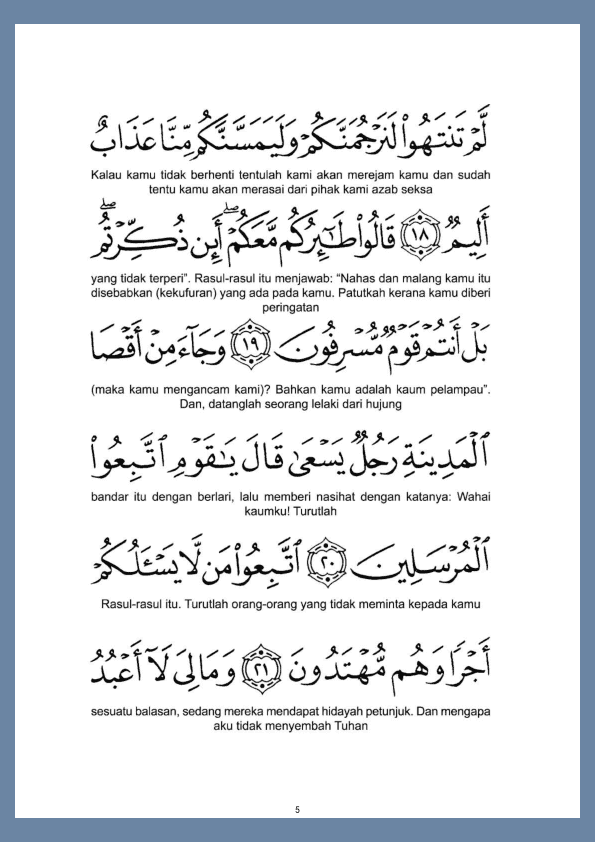 لَّمْ تَنتَهُوا۟ لَنَرْجُمَنَّكُمْ وَلَيَمَسَّنَّكُم مِّنَّا عَذَابٌ
Kalau kamu tidak berhenti tentulah kami akan merejam kamu dan sudah
tentu kamu akan merasai dari pihak kami azab seksa
أَلِيمٌ ١٨ قَالُوا۟ طَـٰٓئِرُكُم مَّعَكُمْ ۖ أَئِن ذُكِّرْتُم ۖ
yang tidak terperi”. Rasul-rasul itu menjawab: “Nahas dan malang kamu itu
disebabkan (kekufuran) yang ada pada kamu. Patutkah kerana kamu diberi
peringatan
بَلْ أَنتُمْ قَوْمٌ مُّسْرِفُونَ ١٩ وَجَآءَ مِنْ أَقْصَا
(maka kamu mengancam kami)? Bahkan kamu adalah kaum pelampau”.
Dan, datanglah seorang lelaki dari hujung
ٱلْمَدِينَةِ رَجُلٌ يَسْعَىٰ قَالَ يَـٰقَوْمِ ٱتَّبِعُوا۟
bandar itu dengan berlari, lalu memberi nasihat dengan katanya: Wahai
kaumku! Turutlah
ٱلْمُرْسَلِينَ ٢٠ ٱتَّبِعُوا۟ مَن لَّا يَسْـَٔلُكُمْ
Rasul-rasul itu. Turutlah orang-orang yang tidak meminta kepada kamu
أَجْرًا وَهُم مُّهْتَدُونَ ٢١ وَمَا لِىَ لَآ أَعْبُدُ
sesuatu balasan, sedang mereka mendapat hidayah petunjuk. Dan mengapa
aku tidak menyembah Tuhan
5